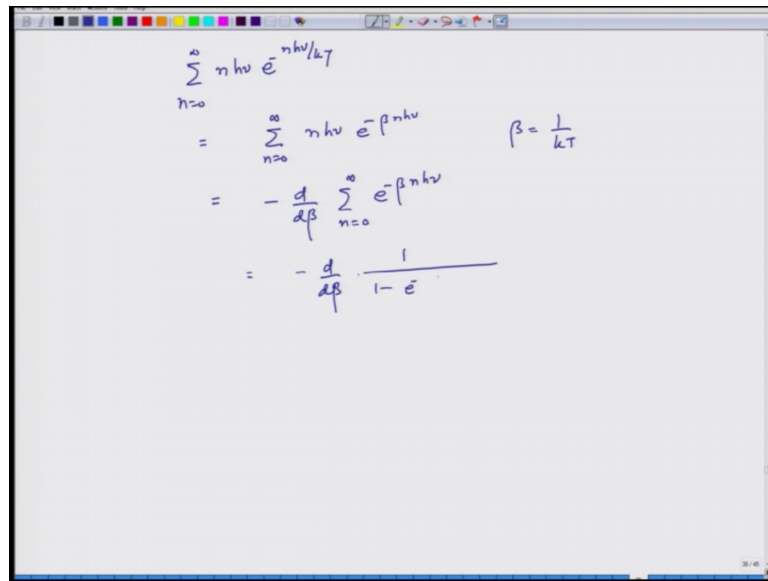 ∞
∑ nhν e^{-nhν/kT}
n=0
= ∑_{n=0}^{∞} nhν e^{-βnhν}    β = 1/kT
= - d/dβ ∑_{n=0}^{∞} e^{-βnhν}
= - d/dβ · 1/(1 - e^{-
38/45